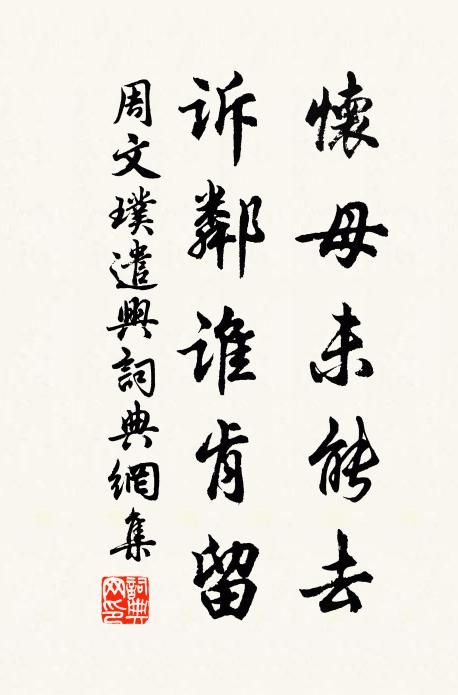 懷母未能去
訴鄰誰肯留
周文璞遣興詞典網集
詞典网印